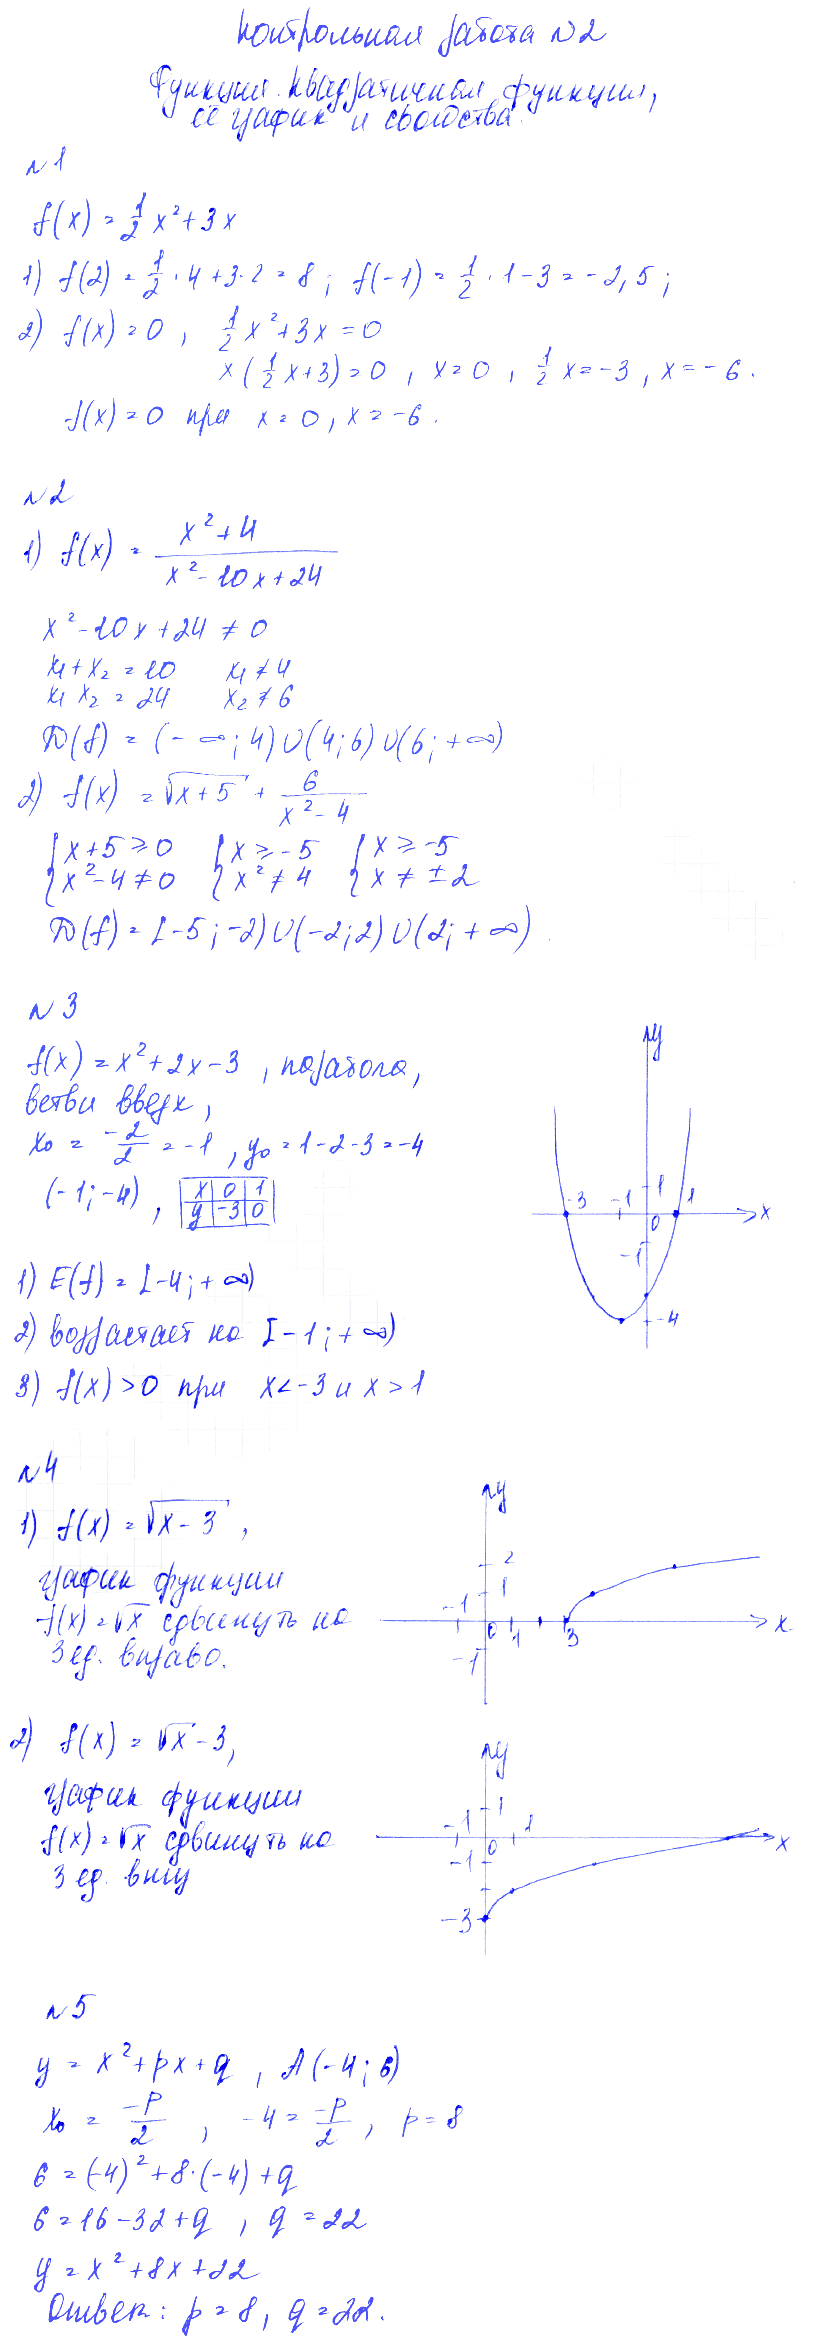 Контрольная работа №2
Функции. Квадратичная функция,
её график и свойства.
№1
f(x) = 1/2 x² + 3x
1) f(2) = 1/2 · 4 + 3 · 2 = 8 ; f(-1) = 1/2 · 1 - 3 = -2,5 ;
2) f(x) = 0 , 1/2 x² + 3x = 0
x (1/2 x + 3) = 0 , x = 0 , 1/2 x = -3 , x = -6 .
f(x) = 0 при x = 0 , x = -6 .
№2
1) f(x) = (x² + 4)/(x² - 10x + 24)
x² - 10x + 24 ≠ 0
x₁ + x₂ = 10 x₁ ≠ 4
x₁ x₂ = 24 x₂ ≠ 6
D(f) = (-∞; 4) ∪ (4; 6) ∪ (6; +∞)
2) f(x) = √(x + 5) + 6/(x² - 4)
{ x + 5 ≥ 0 { x ≥ -5 { x ≥ -5
{ x² - 4 ≠ 0 { x² ≠ 4 { x ≠ ±2
D(f) = [-5; -2) ∪ (-2; 2) ∪ (2; +∞) .
№3
f(x) = x² + 2x - 3 , парабола,
ветви вверх,
x₀ = -2/2 = -1 , y₀ = 1 - 2 - 3 = -4
(-1; -4) , x 0 1
y -3 0
y
1
-3 -1 0 1 x
-1
-4
1) E(f) = [-4; +∞)
2) возрастает на [-1; +∞)
3) f(x) > 0 при x < -3 и x > 1
№4
1) f(x) = √(x - 3) ,
график функции
f(x) = √x сдвинуть на
3 ед. вправо.
y
2
1
-1 0 1 3 x
-1
2) f(x) = √x - 3,
график функции
f(x) = √x сдвинуть на
3 ед. вниз
y
1
-1 0 1 x
-1
-3
№5
y = x² + px + q , A(-4; 6)
x₀ = -p/2 , -4 = -p/2 , p = 8
6 = (-4)² + 8 · (-4) + q
6 = 16 - 32 + q , q = 22
y = x² + 8x + 22
Ответ: p = 8, q = 22.